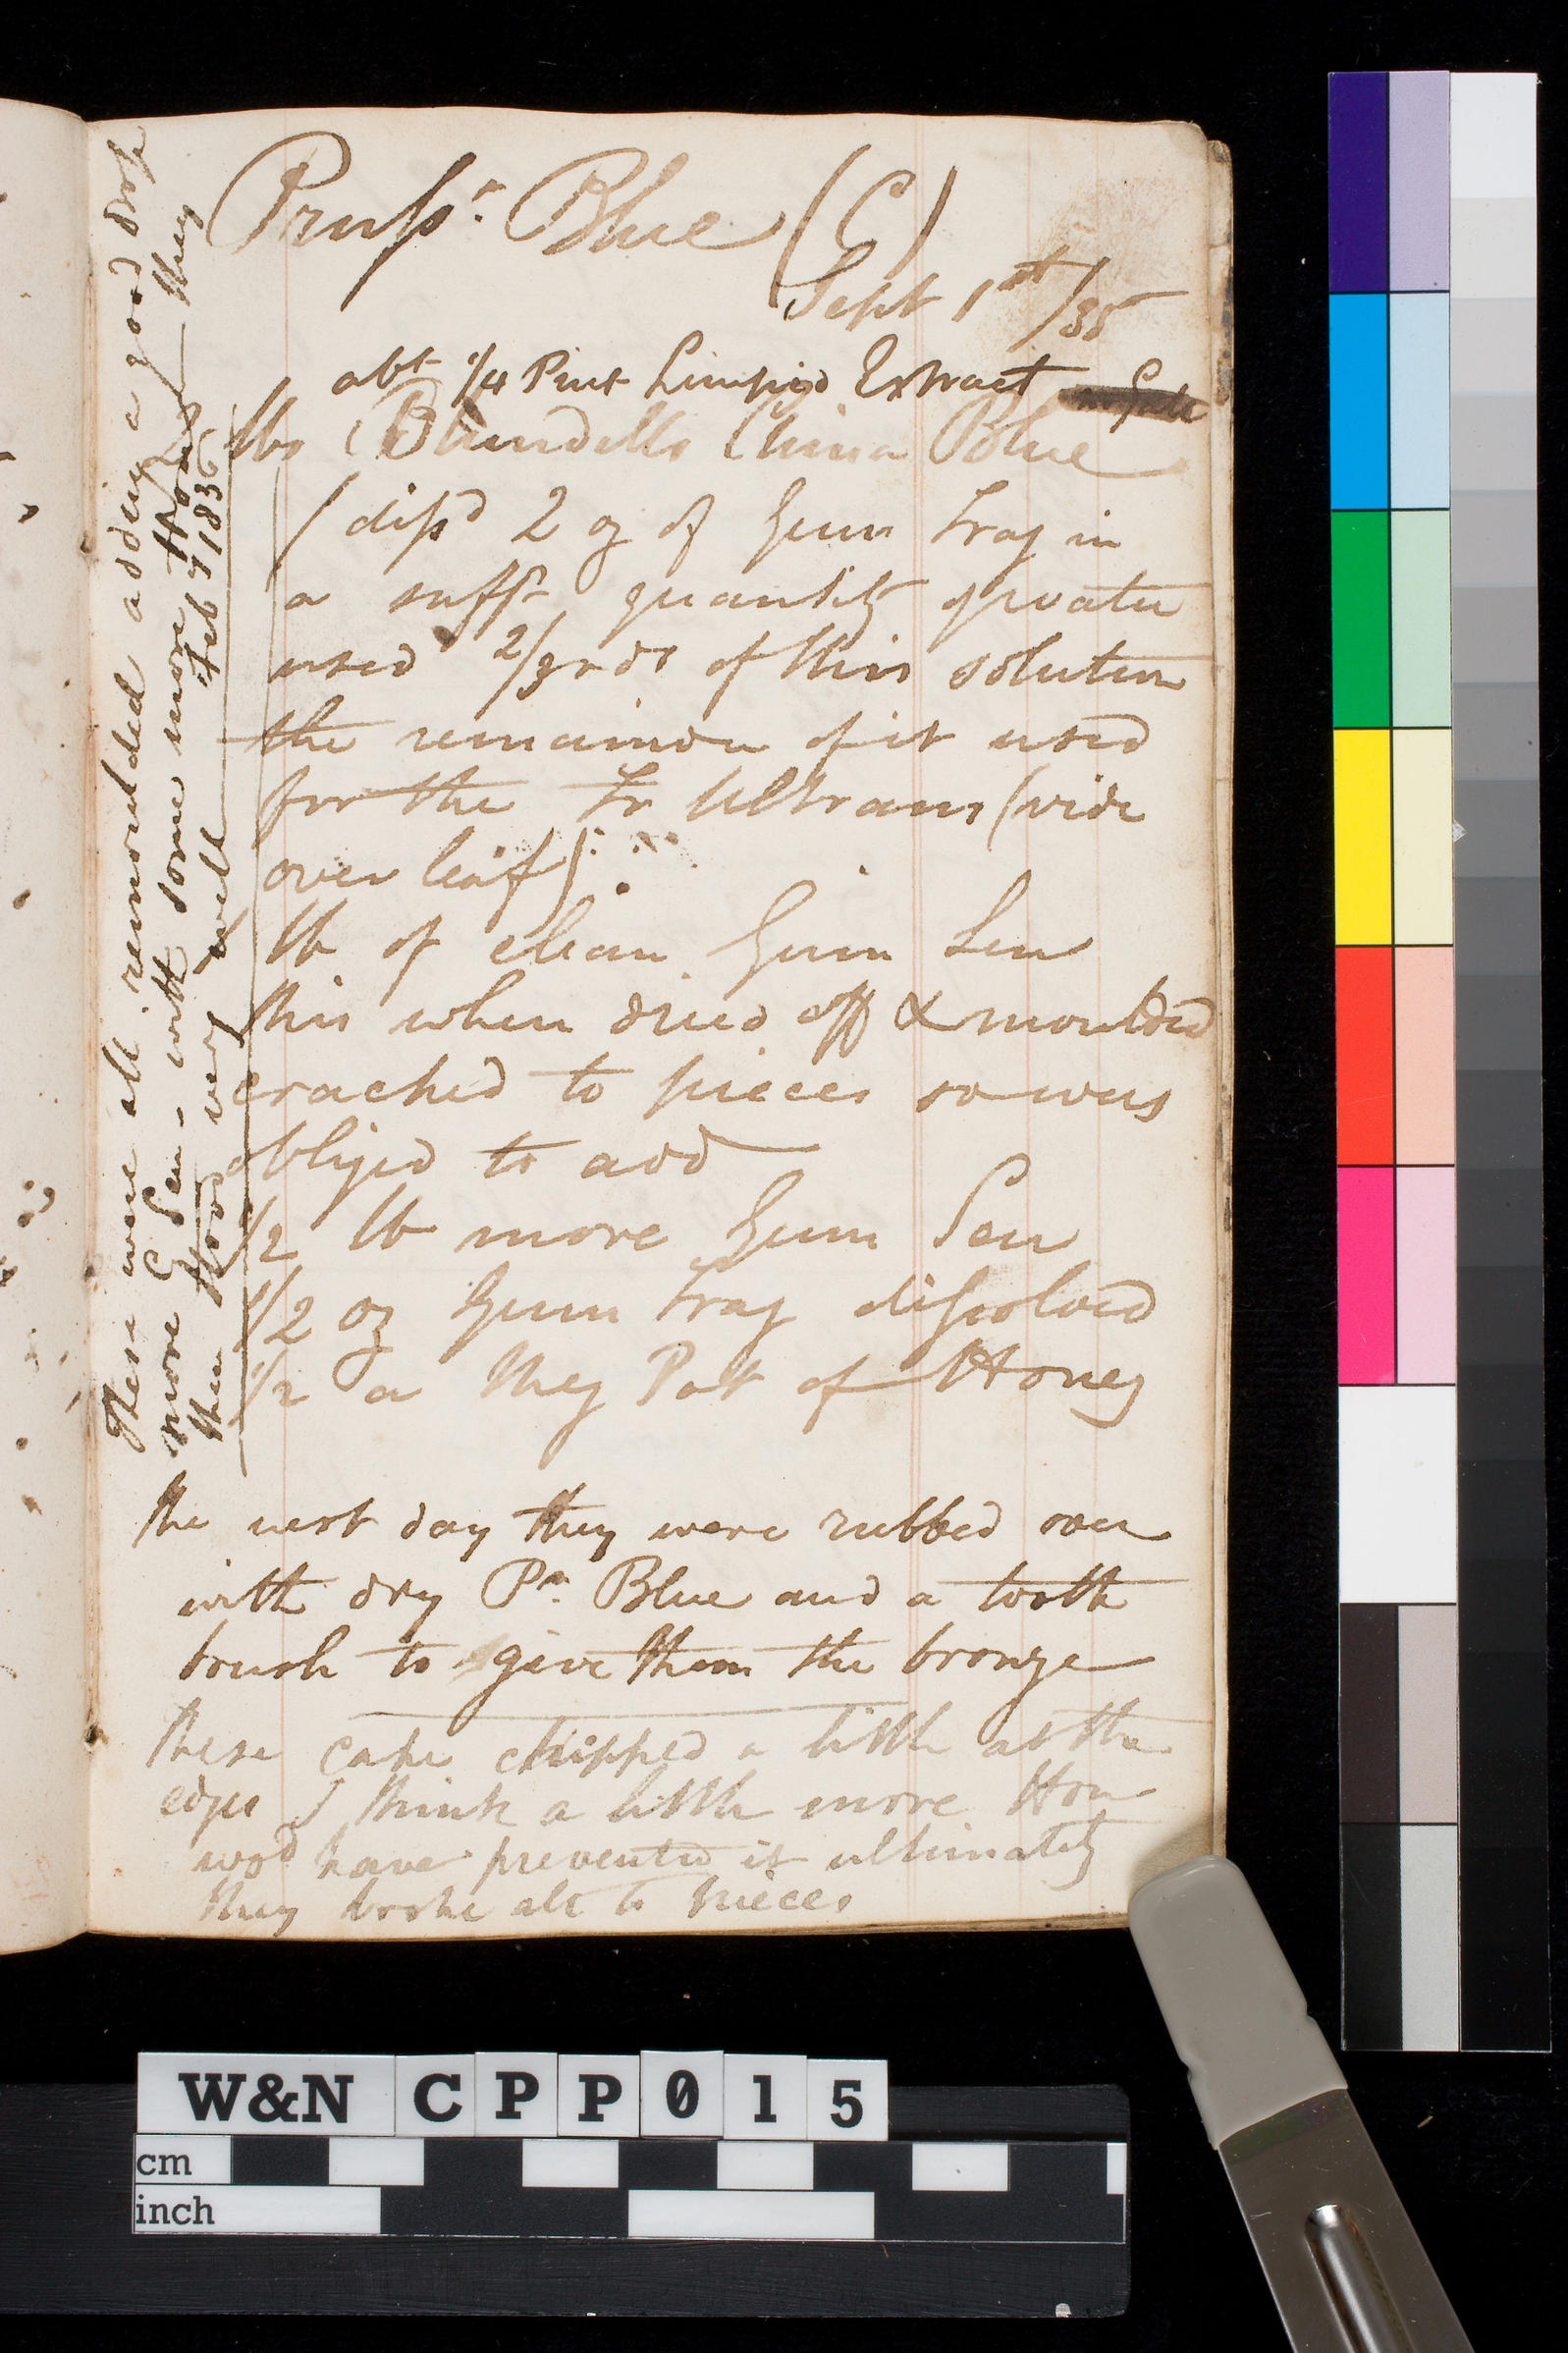 Prussn. Blue (C)
Sept 1st/35
abt 1/4 Pint Limpid Extract
lbs Blundells China Blue
/ dissd 2 oz of Gum Trag in
a sufft quantity of water
used 2/3rds of this solution
the remainder of it used
for the Fr Ultram (vide
over leaf)
lb of clean Gum Sen
this when dried off & moulded
cracked to pieces so was
obliged to add
1/2 lb more Gum Sen
1/2 oz Gum Trag dissolved
1/2 a Meg Pot of Honey
the next day they were rubbed over
with dry Pn. Blue and a tooth
brush to give them the bronze
these cake chipped a little at the
edges I think a little more Hon
wod have prevented it ultimately
they broke all to pieces
These were all remoulded adding a good
more G Sen. with some more Honey they
then stood very well Feb 9 1836
W&N CPP015
cm
inch